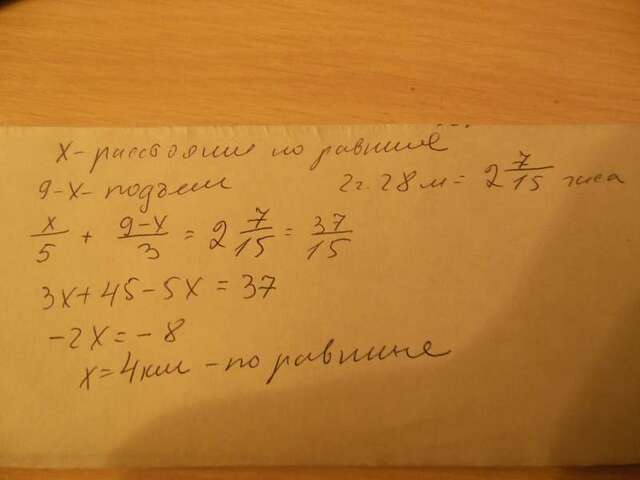 х - расстояние по равнине
9-х - подъем 2ч. 28 м = 2 7/15 часа
х/5 + 9-х/3 = 2 7/15 = 37/15
3х + 45 - 5х = 37
-2х = -8
х = 4 км - по равнине